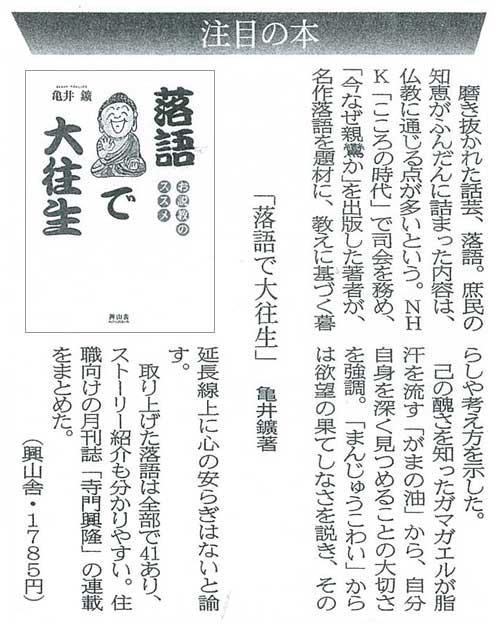 注目の本
磨き抜かれた話芸、落語。庶民の
知恵がふんだんに詰まった内容は、
仏教に通じる点が多いという。NH
K「こころの時代」で司会を務め、
「今なぜ親鸞か」を出版した著者が、
名作落語を題材に、教えに基づく暮
らしや考え方を示した。
己の醜さを知ったガマガエルが脂
汗を流す「がまの油」から、自分
自身を深く見つめることの大切さ
を強調。「まんじゅうこわい」から
は欲望の果てしなさを説き、その
「落語で大往生」　亀井鑛著
延長線上に心の安らぎはないと論
す。
取り上げた落語は全部で41あり、
ストーリー紹介も分かりやすい。住
職向けの月刊誌「寺門興隆」の連載
をまとめた。
（興山舎・1785円）
落語
で
大往生
お説教の
ススメ
亀井 鑛
興山舎